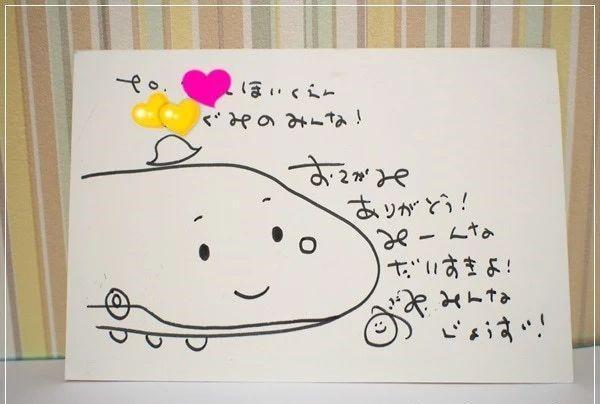 To. ほいくえん
ぐみのみんな!
おてがみ
ありがとう!
みーんな
だいすきよ!
みんな
じょうず!